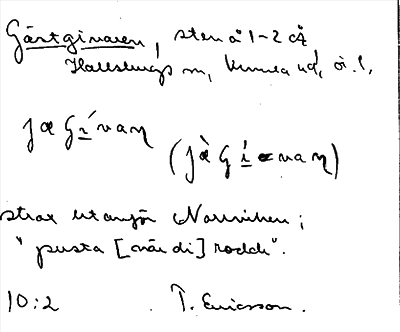 Gärtgivaren, sten å 1-2 cÅ
Hallsbergs sn, Kumla hd, ö. l.
jægívaɳ
(jàgívaɳ)
strax utanför Norrviken;
"pusta [när di] rodde".
10:2 T. Ericsson.